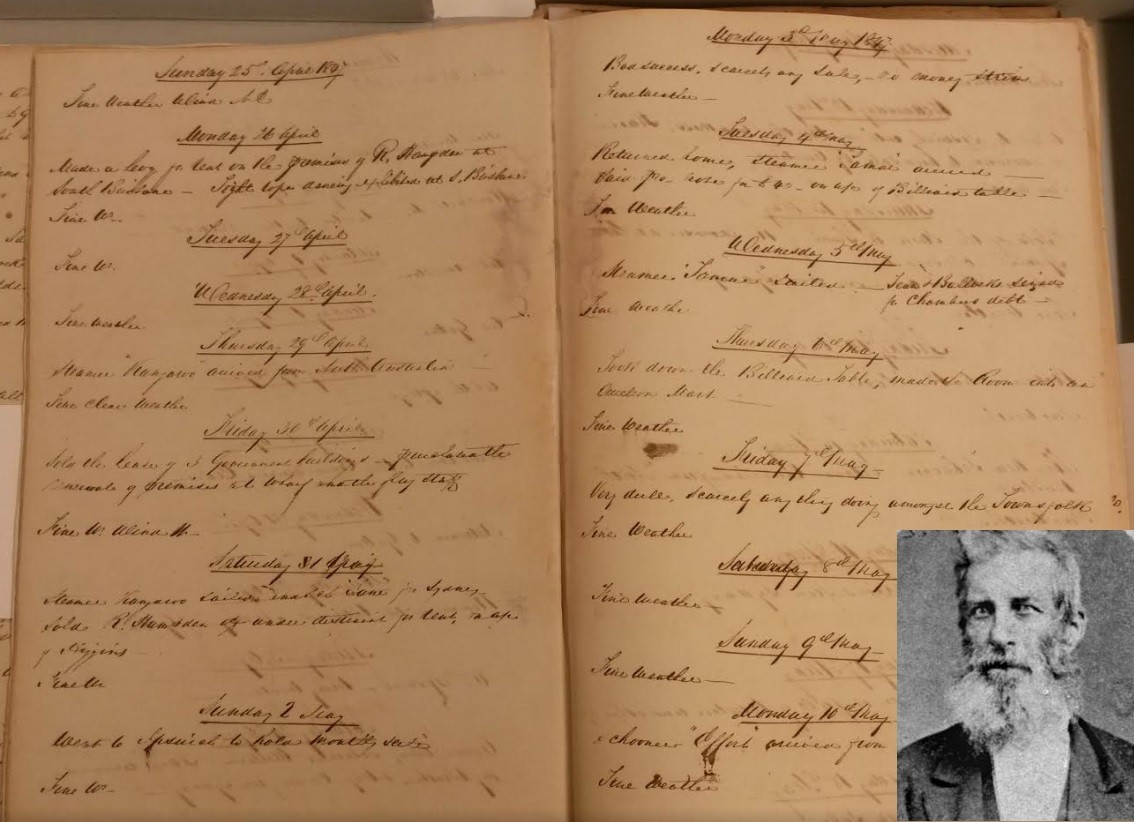 Sunday 25th April 1847
Fine Weather Wind N.E
Monday 26 April
Made a levy for rent on the premises of R. Hamsden at
South Brisbane — Tight rope dancing exhibited at S. Brisbane
Fine Wr.
Tuesday 27th April
Fine Wr.
Wednesday 28th April.
Fine Weather
Thursday 29th April
Steamer Kangaroo arrived from
Fine Clear Weather
Friday 30th April
Sold the lease of 3 Government buildings —
of premises at Wharf flag staff
Fine Wr. Wind
Saturday 31 April
Steamer Kangaroo sailed Jane for Sydney
Sold R. Hamsden under distraint for rent,
of
Fine Wr
Sunday 2 May
Went to Ipswich to hold monthly sale
Fine Wr —
Monday 3d May 1847
Bad success, scarcely any Sales, — no money
Fine Weather —
Tuesday 4th May
Returned home, steamer Tamar arrived —
Paid for of Billiard table —
Fine Weather
Wednesday 5th May
Steamer Tamar Sailed — & Bullocks Seized
for Chambers debt —
Fine Weather
Thursday 6th May
Took down the Billiard Table, made the Room into an
Auction Mart —
Fine Weather
Friday 7th May —
Very dull, scarcely any thing doing amongst the Townsfolk
Fine Weather
Saturday 8th May
Fine Weather —
Sunday 9th May —
Fine Weather —
Monday 10th May
Schooner "Effort" arrived from
Fine Weather